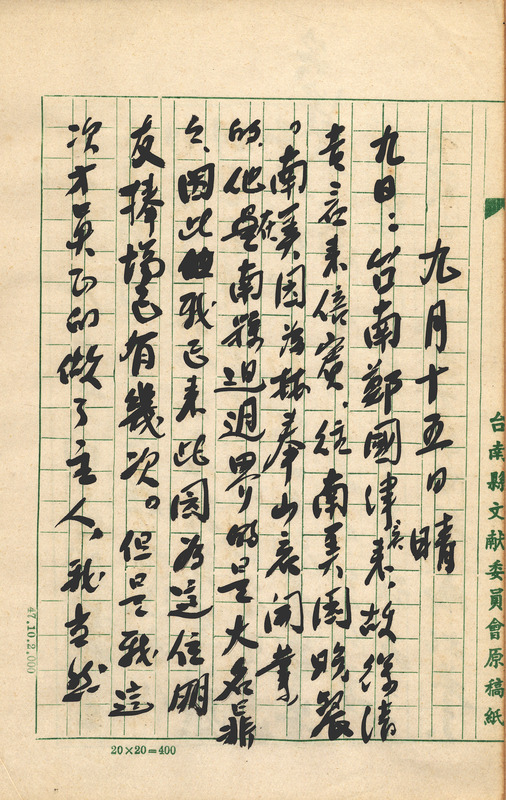 台南縣文献委員會原稿紙
九月十五日 晴
九日：台南鄭國津兄来，故徐清
吉兄来倍賓，往南美園晚餐
，南美園為林奉山兄開業
的，他是在南縣迌迌界的是大名鼎
々，因此我已来此園為這位朋
友捧場已有幾次。但是我這
次才真正的做了主人，我当然
47.10.2,000
20×20=400